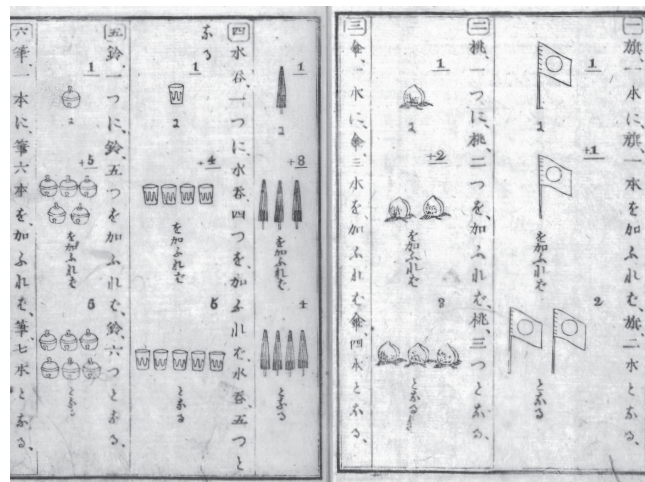 一 旗、一本に、旗、一本を加ふれば、旗、二本となる、
1 に +1 を加ふれば 2 となる
二 桃、一つに、桃、二つを加ふれば、桃、三つとなる、
1 に +2 を加ふれば 3 となる
三 傘、一本に、傘、三本を加ふれば、傘、四本となる、
1 に +3 を加ふれば 4 となる
四 水呑、一つに、水呑、四つを加ふれば、水呑、五つと
なる
1 に +4 を加ふれば 5 となる
五 鈴、一つに、鈴、五つを加ふれば、鈴、六つとなる、
1 に +5 を加ふれば 6 となる
六 筆、一本に、筆六本を加ふれば、筆七本となる、